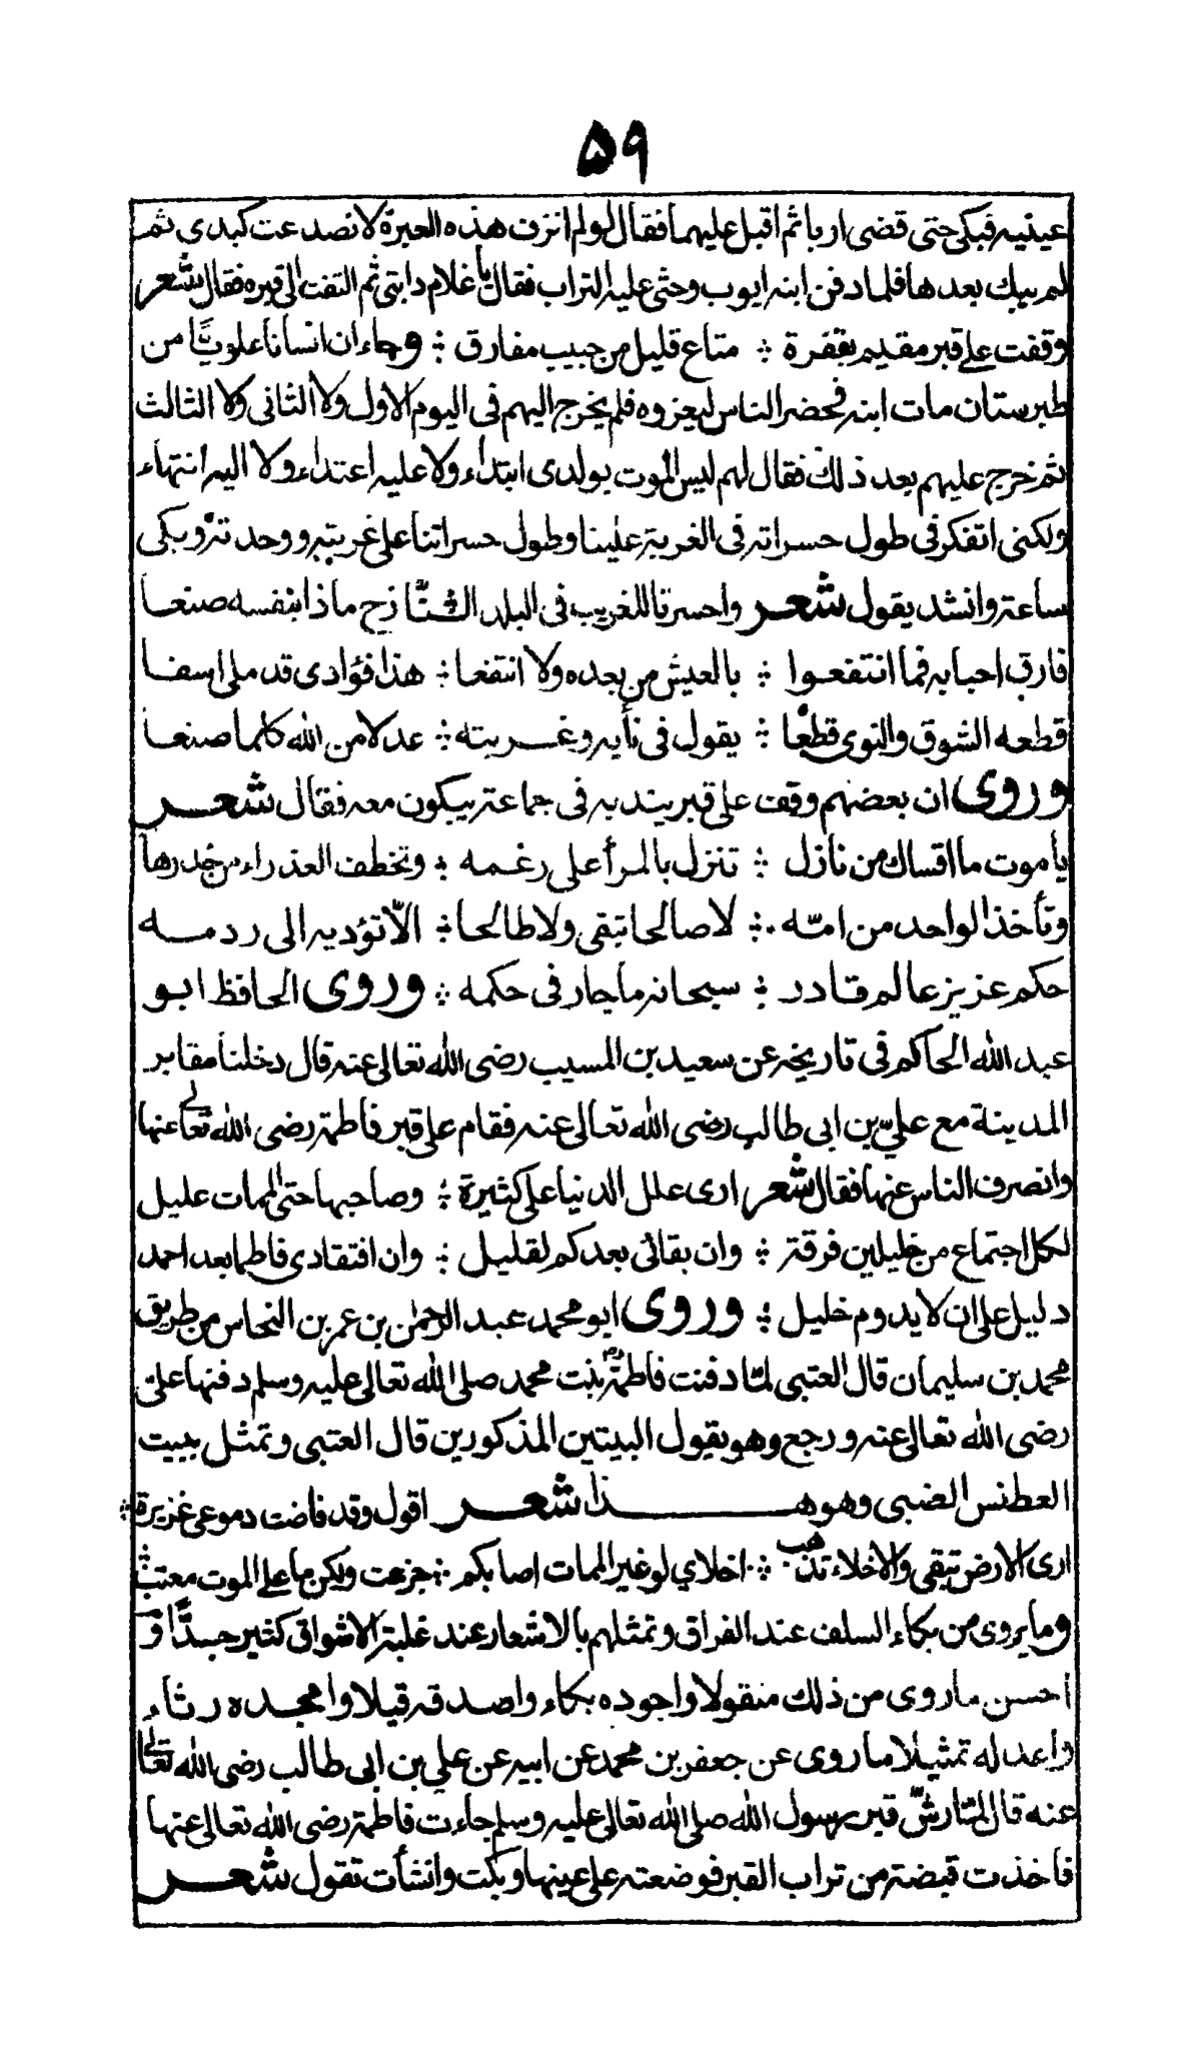 ۵۹
عينيه فبكى حتى قضى اربا ثم اقبل عليهما فقال لو لم انزف هذه العبرة لانصدعت كبدى ثم
لم يبك بعدها فلما دفن ابنه ايوب وحثى عليه التراب فقال يا غلام دابتى ثم التفت الى قبره فقال شعر
وقفت على قبر مقيم بقفرة ؞ متاع قليل من حبيب مفارق ؞ وجاء ان انسانا علويًا من
طبرستان مات ابنه فحضر الناس ليعزوه فلم يخرج اليهم فى اليوم الاول ولا الثانى ولا الثالث
ثم خرج عليهم بعد ذلك فقال لهم ليس الموت بولدى ابتداء ولا عليه اعتداء ولا اليه انتهاء
ولكنى اتفكر فى طول حسراته فى الغربة علينا وطول حسراتنا على غربته ووحدته وبكى
ساعة وانشد يقول شعر واحسرتا للغريب فى البلد النّازح ماذا بنفسه صنعا
فارق احبابه فما انتفعوا ؞ بالعيش من بعده ولا انتفعا ؞ هذا فؤادى قد ملى اسفا
قطعه الشوق والنوى قطعًا ؞ يقول فى نأيه وغربته ؞ عدلا من الله كلما صنعا
وروى ان بعضهم وقف على قبر يندبه فى جماعة يبكون معه فقال شعر
يا موت ما اقساك من نازل ؞ تنزل بالمرأ على رغمه ؞ وتخطف العذراء من خدرها
وتأخذ الواحد من امّه ؞ لا صالحا تبقى ولا طالحا ؞ الّا تؤديه الى ردمه
حكم عزيز عالم قادر ؞ سبحانه ما جار فى حكمه ؞ وروى الحافظ ابو
عبد الله الحاكم فى تاريخه عن سعيد بن المسيب رضى الله تعالى عنه قال دخلنا مقابر
المدينة مع عليّ بن ابى طالب رضى الله تعالى عنه فقام على قبر فاطمة رضى الله تعالى عنها
وانصرف الناس عنها فقال شعر ارى علل الدنيا على كثيرة ؞ وصاحبها حتى الممات عليل
لكل اجتماع من خليلين فرقة ؞ وان بقائى بعدكم لقليل ؞ وان افتقادى فاطما بعد احمد
دليل على ان لا يدوم خليل ؞ وروى ابو محمد عبد الرحمٰن بن عمر بن النحاس من طريق
محمد بن سليمان قال العتبى لمّا دفنت فاطمةؓ بنت محمد صلى الله تعالى عليه وسلم دفنها على
رضى الله تعالى عنه ورجع وهو يقول البيتين المذكورين قال العتبى وتمثل ببيت
العطنس الضبى وهو هذا شعر اقول وقد فاضت دموعى غزيرة ؞
ارى الارض تبقى والاخلاء تذهب ؞ اخلاي لو غير الممات اصابكم ؞ جزعت ولكن ما على الموت معتب
وما يروى من بكاء السلف عند الفراق وتمثلهم بالاشعار عند غلبة الاشواق كثير جدًّا و
احسن ما روى من ذلك منقولا واجوده بكاء واصدقه قيلا وامجده رثاء
واعدله تمثيلا ما روى عن جعفر بن محمد عن ابيه عن علي بن ابى طالب رضى الله تعالى
عنه قال لمّا رشّ قبر رسول الله صلى الله تعالى عليه وسلم جاءت فاطمة رضى الله تعالى عنها
فاخذت قبضة من تراب القبر فوضعته على عينها وبكت وانشأت تقول شعر